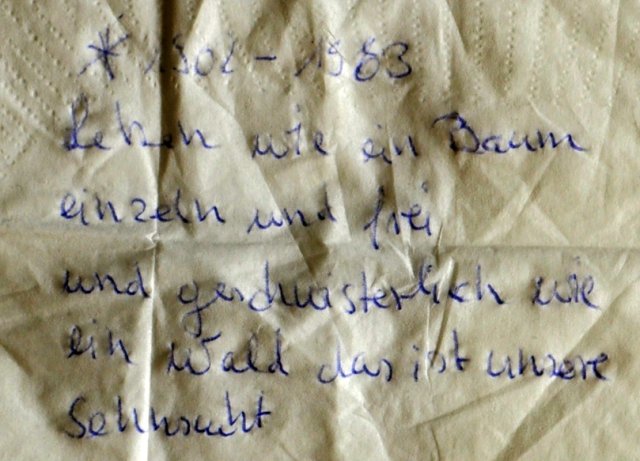 * 1902 - 1963
Leben wie ein Baum
einzeln und frei
und geschwisterlich wie
ein Wald das ist unsere
Sehnsucht